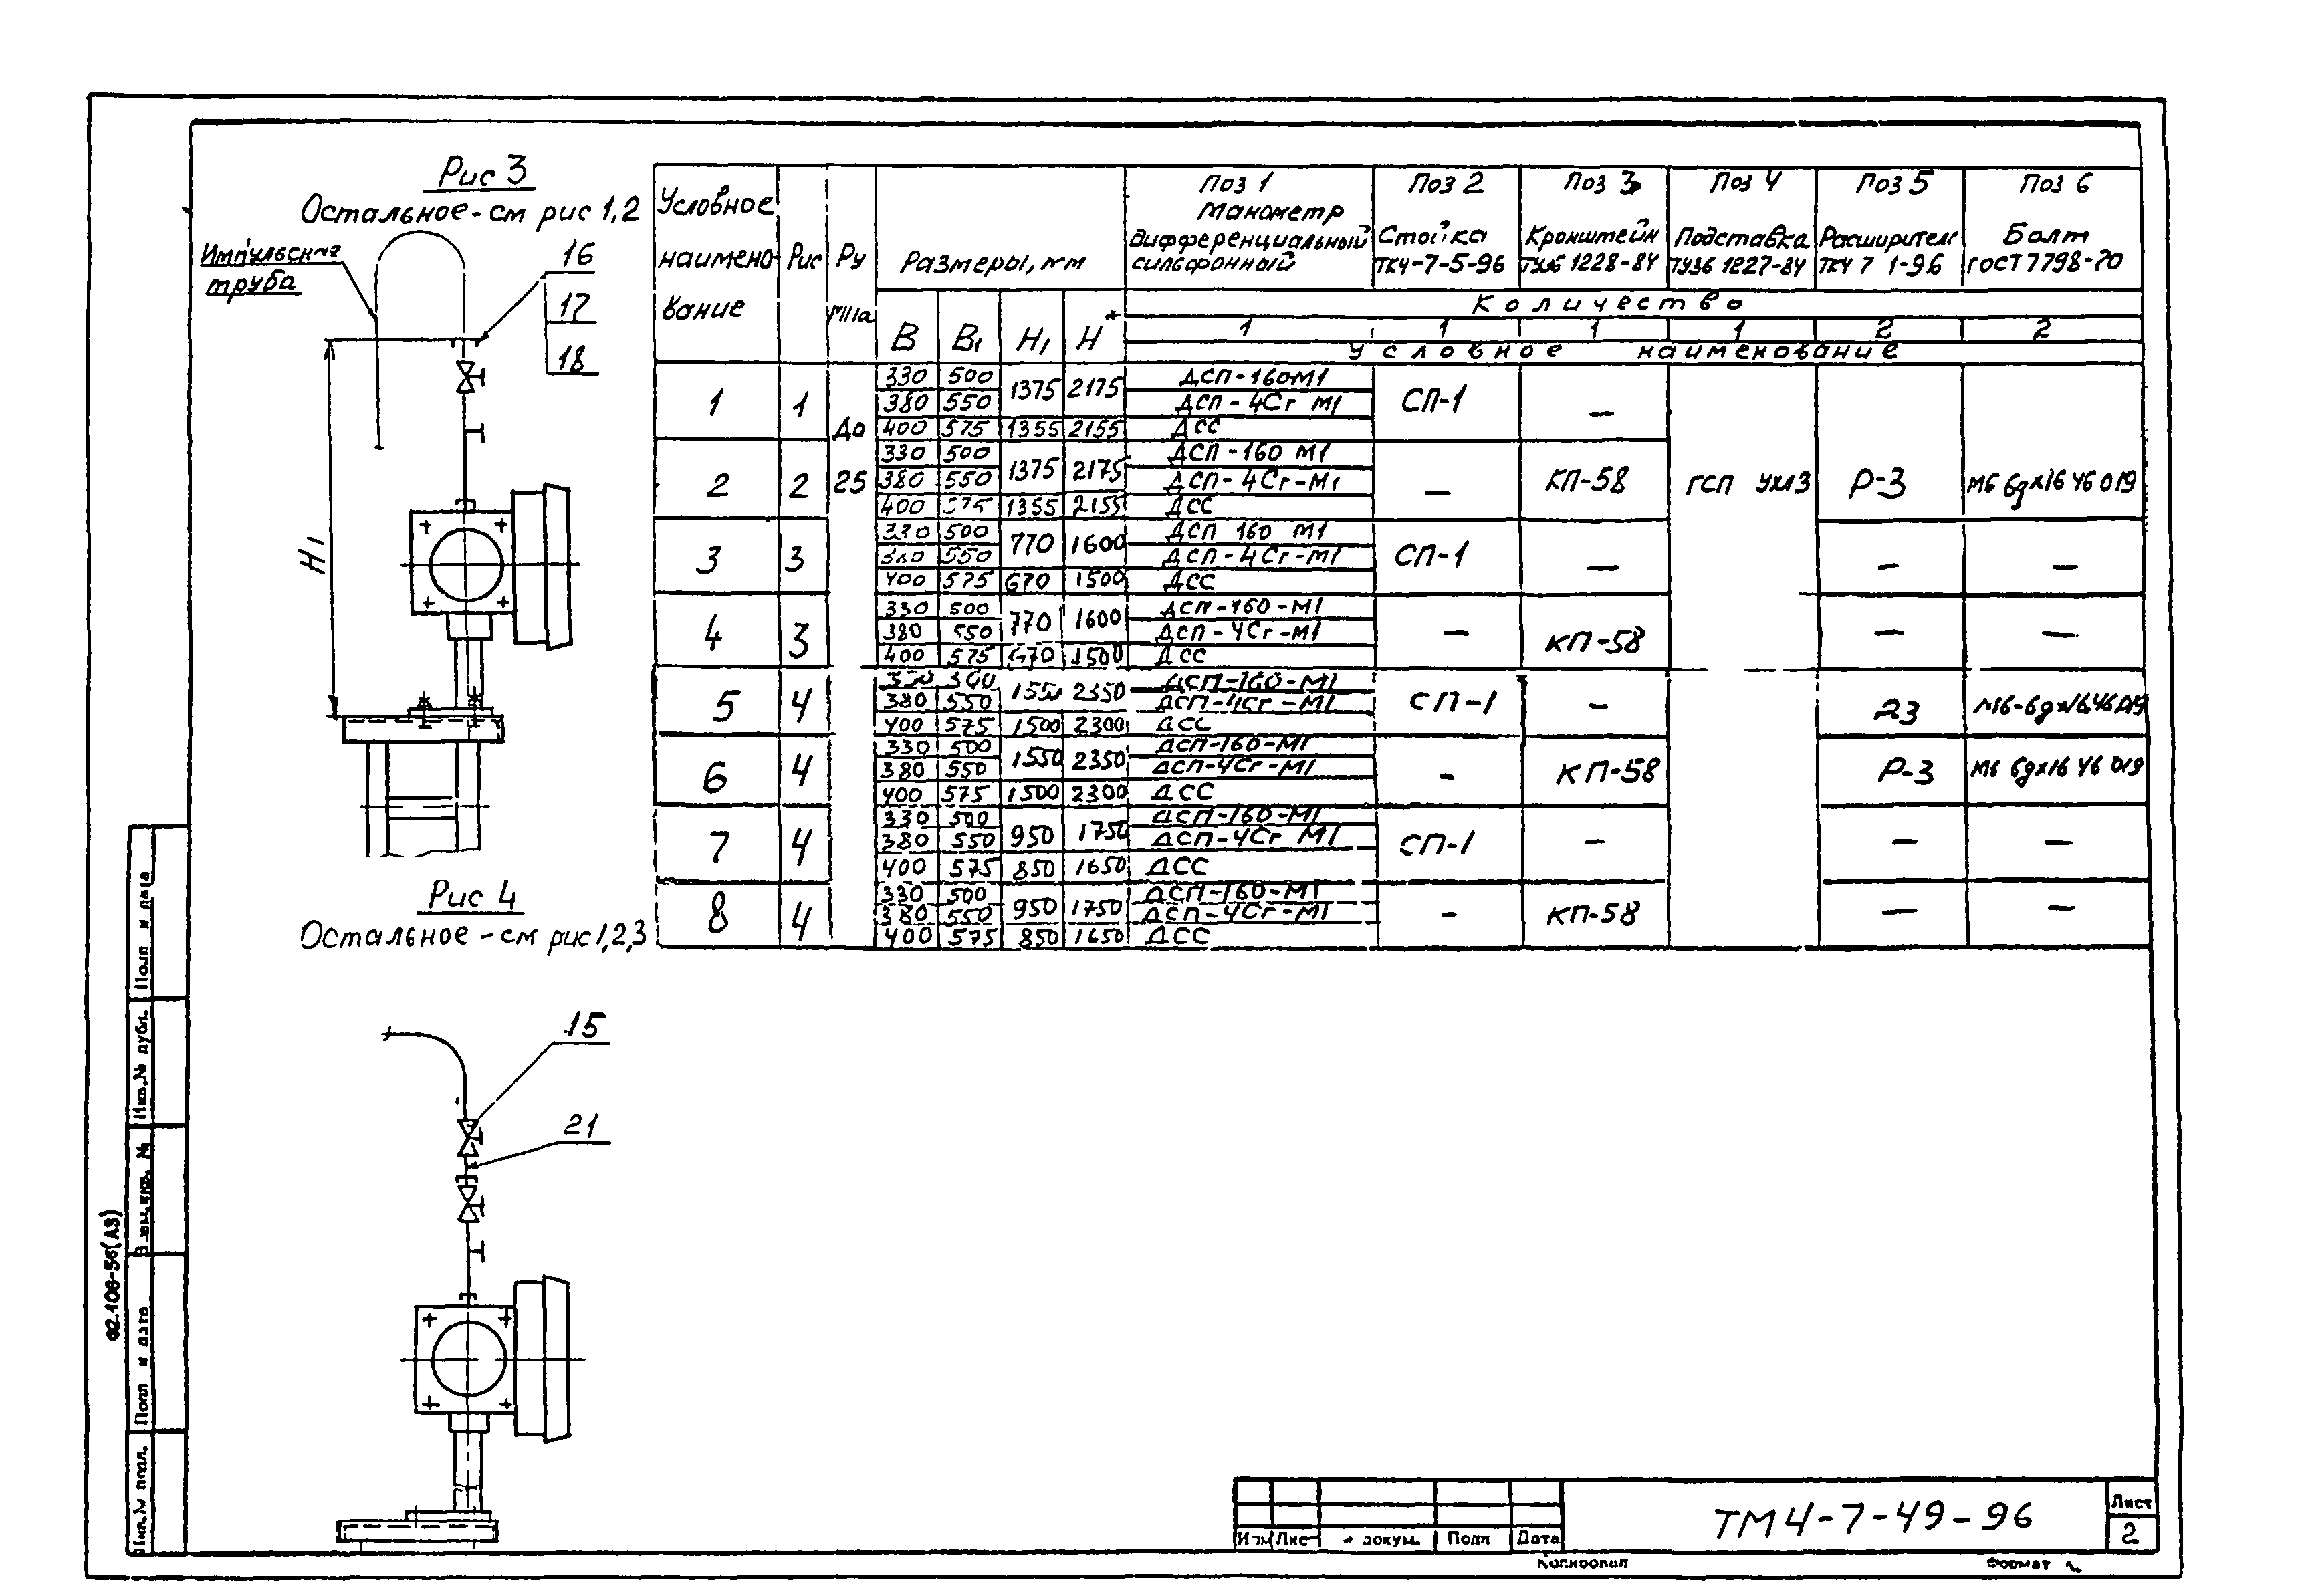 Рис 3
Остальное - см рис 1,2
Импульсная
труба
16
17
18
H1
Рис 4
Остальное - см рис 1,2,3
15
21
Условное наименование | Рис | Ру МПа | Размеры, мм
В | В1 | Н1 | Н*
Поз 1 Манометр дифференциальный сильфонный | Поз 2 Стойка ТК4-7-5-96 | Поз 3 Кронштейн ТУ36 1228-84 | Поз 4 Подставка ТУ36 1227-84 | Поз 5 Расширитель ТК4 7 1-96 | Поз 6 Болт ГОСТ 7798-70
Количество
1 | 1 | 1 | 1 | 2 | 2
Условное наименование
До 25
ГСП УХЛ3
1 | 1 | 330 | 500 | 1375 | 2175 | ДСП-160М1 | СП-1 | —
380 | 550 | ДСП-4Сг М1
400 | 575 | 1355 | 2155 | ДСС
2 | 2 | 330 | 500 | 1375 | 2175 | ДСП-160 М1 | — | КП-58 | Р-3 | М6 6gx16 46 019
380 | 550 | ДСП-4Сг-М1
400 | 575 | 1355 | 2155 | ДСС
3 | 3 | 330 | 500 | 770 | 1600 | ДСП 160 М1 | СП-1 | — | — | —
380 | 550 | ДСП-4Сг-М1
400 | 575 | 670 | 1500 | ДСС
4 | 3 | 330 | 500 | 770 | 1600 | ДСП-160-М1 | — | КП-58 | — | —
380 | 550 | ДСП-4Сг-М1
400 | 575 | 670 | 1500 | ДСС
5 | 4 | 330 | 500 | 1550 | 2350 | ДСП-160-М1 | СП-1 | — | Р3 | М6-6gx16.46.019
380 | 550 | ДСП-4Сг-М1
400 | 575 | 1500 | 2300 | ДСС
6 | 4 | 330 | 500 | 1550 | 2350 | ДСП-160-М1 | - | КП-58 | Р-3 | М6 6gx16 46 019
380 | 550 | ДСП-4Сг-М1
400 | 575 | 1500 | 2300 | ДСС
7 | 4 | 330 | 500 | 950 | 1750 | ДСП-160-М1 | СП-1 | — | — | —
380 | 550 | ДСП-4Сг М1
400 | 575 | 850 | 1650 | ДСС
8 | 4 | 330 | 500 | 950 | 1750 | ДСП-160-М1 | - | КП-58 | — | —
380 | 550 | ДСП-4Сг-М1
400 | 575 | 850 | 1650 | ДСС
Подп и дата
Инв.№ дубл.
Взам.инв. №
Подп и дата
Инв.№ подл.
Ф2.108-56(А3)
Изм Лист № докум. Подп Дата
ТМ4-7-49-96
Лист
2
Копировал
Формат